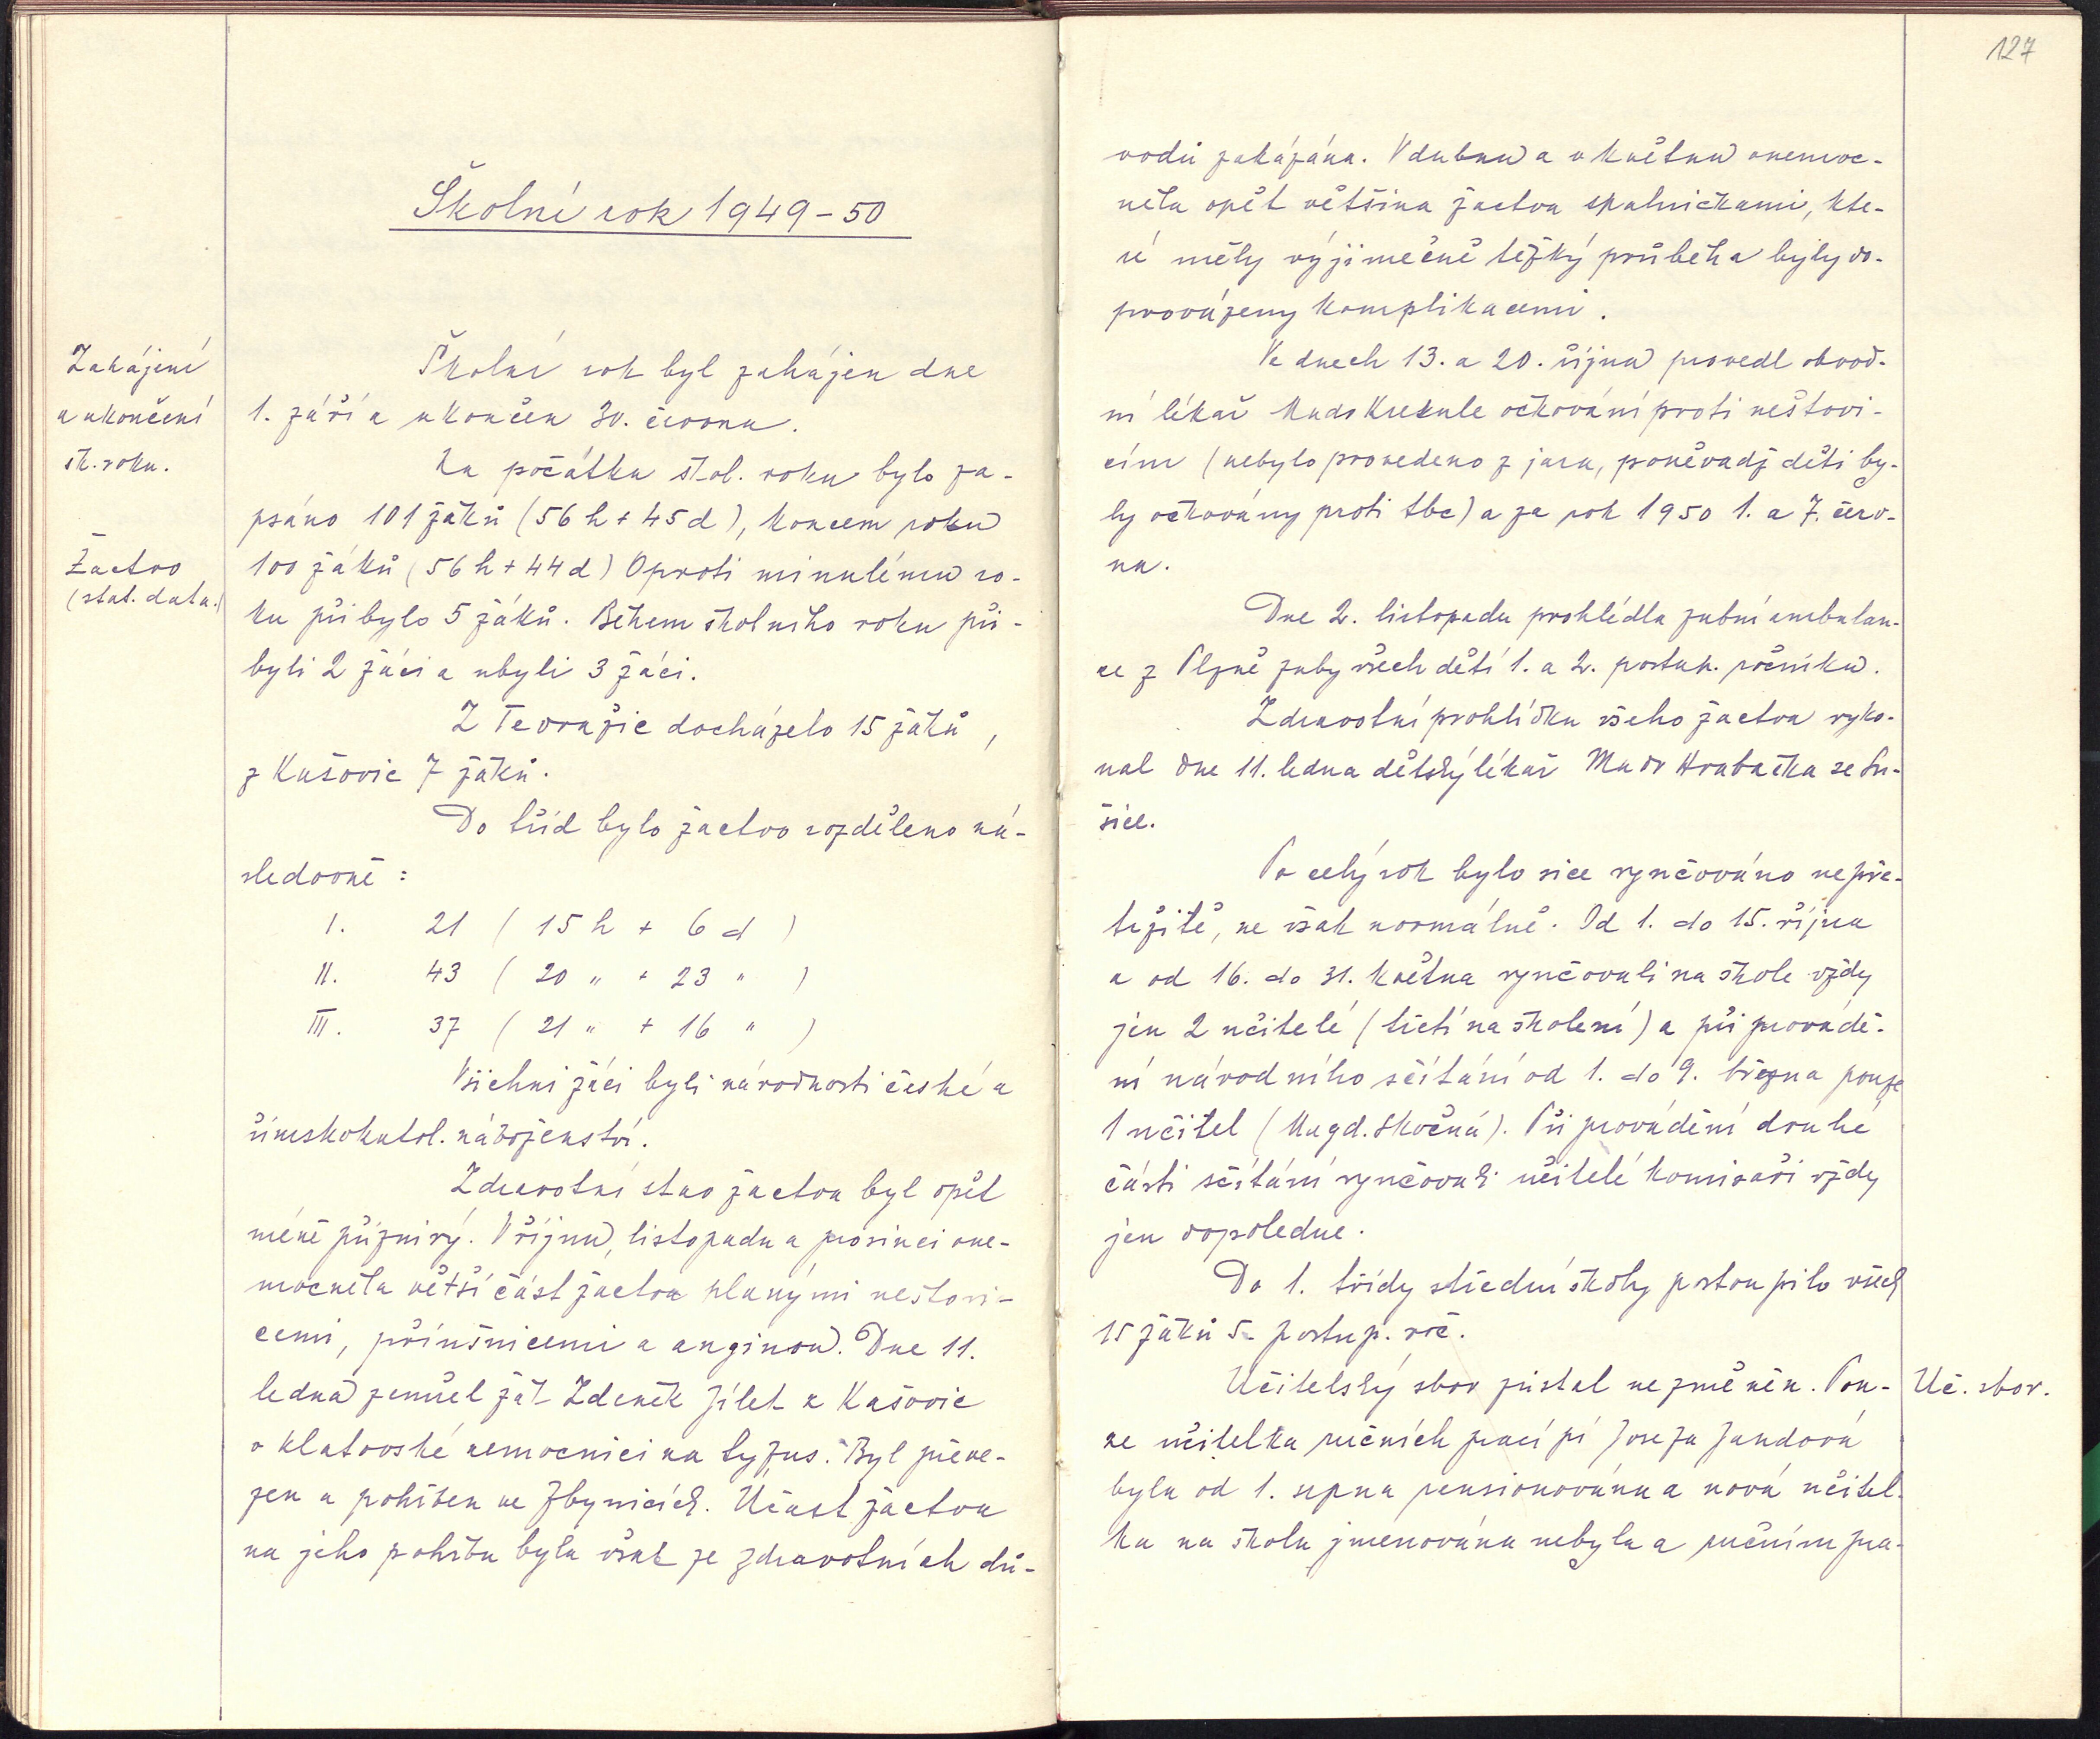 Školní rok 1949-50
Zahájení
a ukončení
šk. roku.
Školní rok byl zahájen dne
1. září a ukončen 30. června.
Na počátku škol. roku bylo za-
psáno 101 žáků (56 h + 45 d), koncem roku
Žactvo
(stat. data.)
100 žáků (56 h + 44 d) Oproti minulému ro-
ku přibylo 5 žáků. Během školního roku při-
byli 2 žáci a ubyli 3 žáci.
Z Tedražic docházelo 15 žáků,
z Kašovic 7 žáků.
Do tříd bylo žactvo rozděleno ná-
sledovně:
I. 21 ( 15 h + 6 d )
II. 43 ( 20 " + 23 " )
III. 37 ( 21 " + 16 " )
Všichni žáci byli národnosti české a
římskokatol. náboženství.
Zdravotní stav žactva byl opět
méně příznivý. V říjnu, listopadu a prosinci one-
mocněla větší část žactva planými neštovi-
cemi, příušnicemi a anginou. Dne 11.
ledna zemřel žák Zdeněk Jílek z Kašovic
v klatovské nemocnici na tyfus. Byl převe-
zen a pohřben ve Zbynicích. Účast žactva
na jeho pohřbu byla však ze zdravotních dů-
127
vodů zakázána. V dubnu a v květnu onemoc-
něla opět většina žactva spalničkami, kte-
ré měly výjimečně těžký průběh a byly do-
provázeny komplikacemi.
Ve dnech 13. a 20. října provedl obvod-
ní lékař Mudr Krekule očkování proti neštovi-
cím (nebylo provedeno z jara, poněvadž děti by-
ly očkovány proti tbc) a za rok 1950 1. a 7. červ-
na.
Dne 2. listopadu prohlédla zubní ambulan-
ce z Plzně zuby všech dětí 1. a 2. postup. ročníku.
Zdravotní prohlídku všeho žactva vyko-
nal dne 11. ledna dětský lékař Mudr Hrabačka ze Su-
šice.
Po celý rok bylo sice vyučováno nepře-
tržitě, ne však normálně. Od 1. do 15. října
a od 16. do 31. května vyučovali na škole vždy
jen 2 učitelé (třetí na školení) a při provádě-
ní národního sčítání od 1. do 9. března pouze
1 učitel (Magd. Skočná). Při provádění druhé
části sčítání vyučovali učitelé komisaři vždy
jen dopoledne.
Do 1. třídy střední školy postoupilo všech
15 žáků 5. postup. roč.
Učitelský sbor zůstal nezměněn. Pou-
Uč. sbor.
ze učitelka ručních prací pí Josefa Jandová
byla od 1. srpna pensionována a nová učitel-
ka na školu jmenována nebyla a ručním pra-